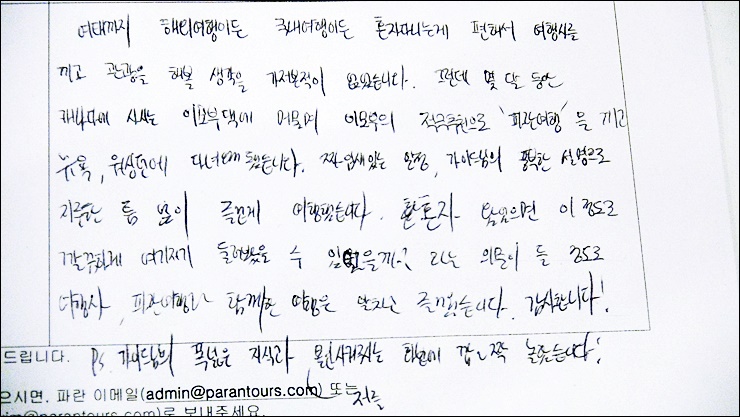 여태까지 해외여행이든 국내여행이든 혼자다니는게 편해서 여행사를
끼고 관광을 해볼 생각을 가져본적이 없었습니다. 그런데 몇 달 동안
캐나다에 사시는 이모부댁에 머물며 이모부의 적극추천으로 '파란여행'을 끼고
뉴욕, 워싱턴에 다녀오게 됐습니다. 짜임새있는 일정, 가이드님의 풍부한 설명으로
지루할 틈 없이 즐겁게 여행했습니다. 혼자 왔으면 이 정도로
깔끔하게 여기저기 둘러봤을 수 있었을까~? 라는 의문이 들 정도로
여행사, 파란여행과 함께한 여행은 알차고 즐거웠습니다. 감사합니다!
드립니다. PS 가이드님의 폭넓은 지식과
깜짝 놀랐습니다!
으시면, 파란 이메일(admin@parantours.com) 또는
저를
@parantours.com)로 보내주세요.